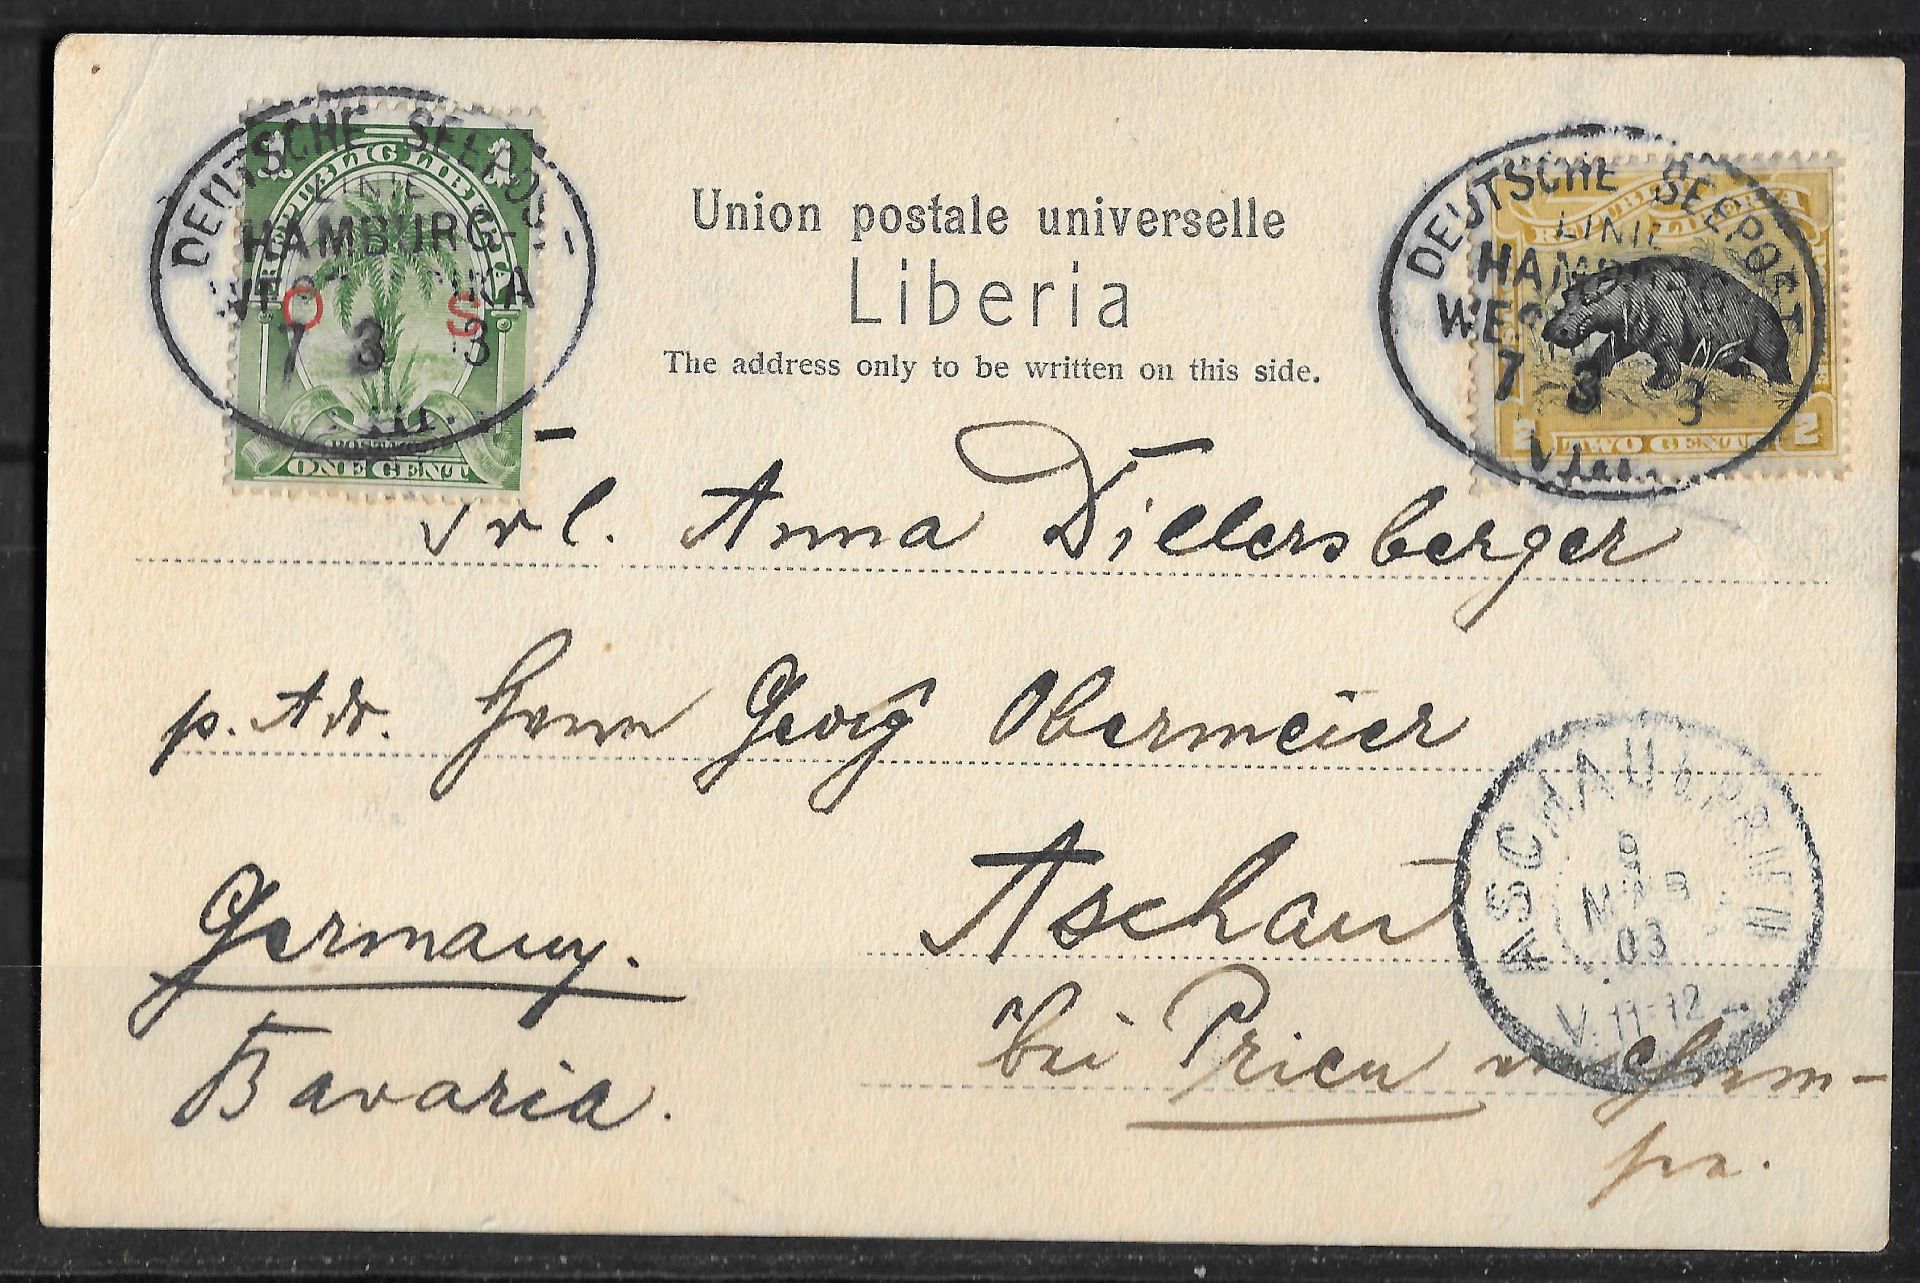 DEUTSCHE SEEPOST
LINIE
HAMBURG-
WESTAFRIKA
7 3 3
REPUBLIC LIBERIA
O S
POSTAGE
ONE CENT
Union postale universelle
Liberia
The address only to be written on this side.
DEUTSCHE SEEPOST
LINIE
HAMB
WES
7 3 3
REPUBLIC
LIBERIA
2 TWO CENTS 2
Frl. Anna Dillersberger
p. Adr. Herrn Georg Obermeier
Aschau
bei Prien
Germany.
Bavaria.
ASCHAU b. PRIEN
MAR
03
V. 11-12